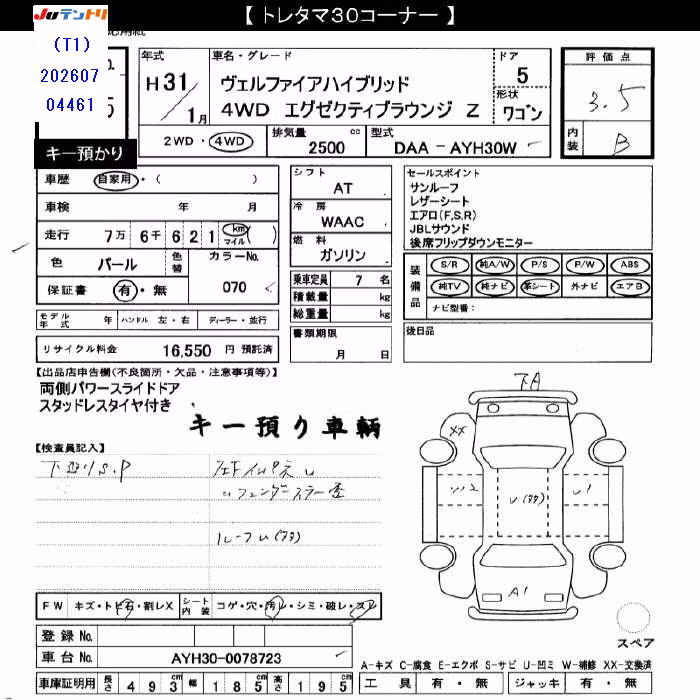 【トレタマ30コーナー】
JUテントリ
(T1)
202607
04461
キー預かり
年式
H31/1月
車名・グレード
ヴェルファイアハイブリッド
4WD エグゼクティブラウンジ Z
ドア
5
形状
ワゴン
評価点
3.5
内装
B
2WD・4WD
排気量
2500 cc
型式
DAA-AYH30W
車歴 自家用・( )
車検 年 月
走行 7万6千621 km マイル ( )
色 パール 色替 カラーNo.
保証書 有・無 070
モデル年式 年 ハンドル 左・右 ディーラー・並行
リサイクル料金 16,550 円 預託済
シフト
AT
冷房
WAAC
燃料
ガソリン
乗車定員 7 名
積載量 kg
総重量 kg
書類期限
月 日
セールスポイント
サンルーフ
レザーシート
エアロ(F,S,R)
JBLサウンド
後席フリップダウンモニター
装備品
S/R 純A/W P/S P/W ABS
純TV 純ナビ 革シート 外ナビ エアB
ナビ型番:
後日品
【出品店申告欄(不良箇所・欠品・注意事項等)】
両側パワースライドドア
スタッドレスタイヤ付き
キー預り車輌
【検査員記入】
ルーフU
下A
XX
U
U1
A1
スペア
FW キズ・トビ石・割レX シート内装 コゲ・穴・汚レ・シミ・破レ・スレ
登録No.
車台No. AYH30-0078723
車庫証明用 長さ 493cm 幅 185cm 高さ 195cm
A-キズ C-腐食 E-エクボ S-サビ U-凹ミ W-補修 XX-交換済
工具 有・無 ジャッキ 有・無